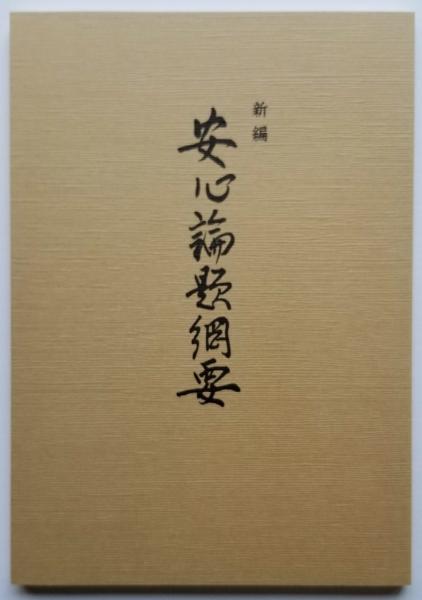 新編
安心論題綱要